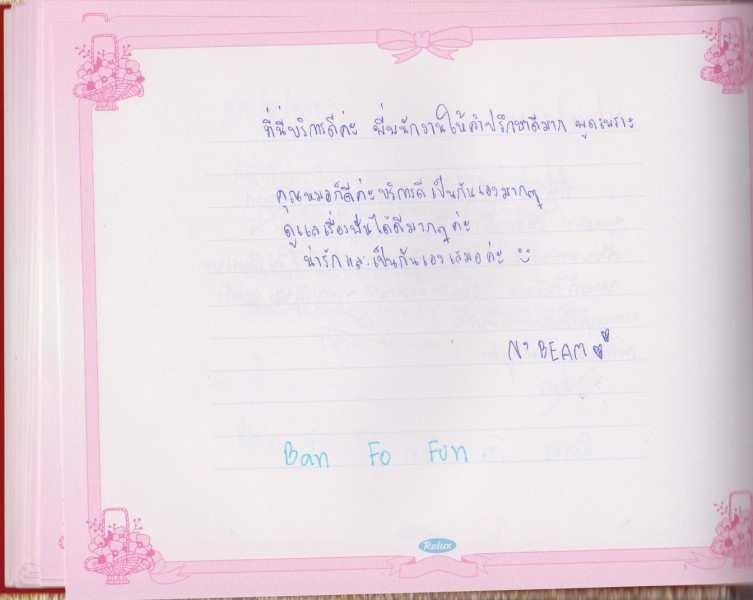 ที่นี่บริการดีค่ะ พี่พนักงานให้คำปรึกษาดีมาก พูดเพราะ
คุณหมอก็ดีค่ะบริการดีเป็นกันเองมากๆ
ดูแลเรื่องฟันได้ดีมากๆค่ะ
น่ารักและเป็นกันเองเสมอค่ะ
N' BEAM
Ban Fo Fun
Relux